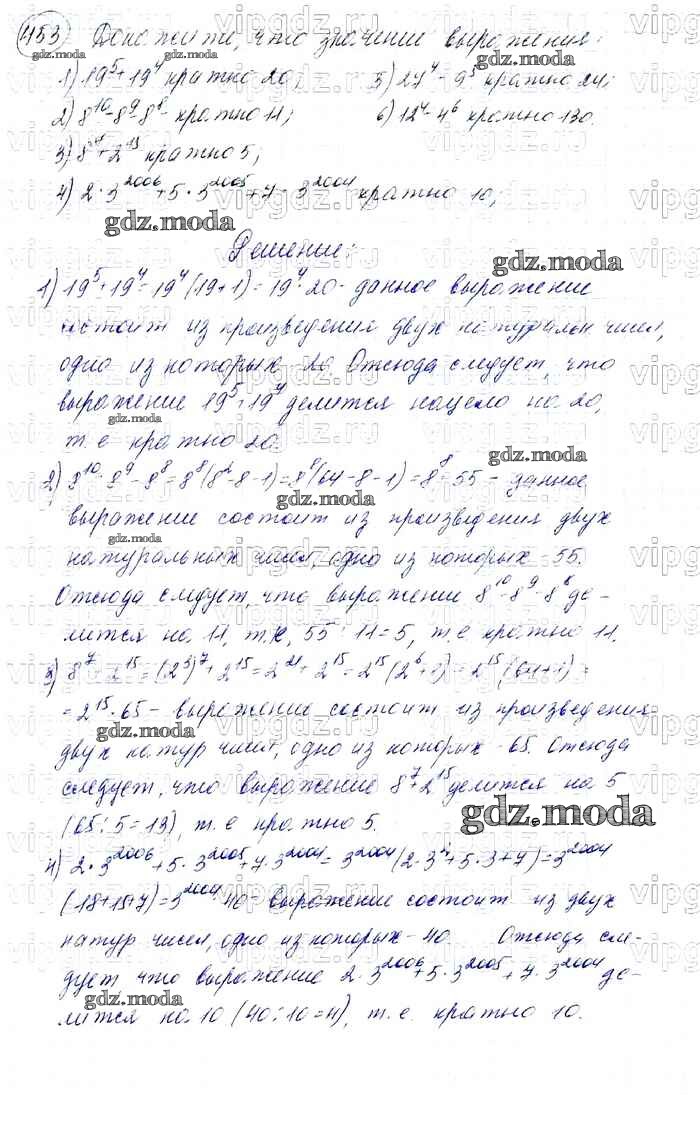 453 Докажите, что значение выражения:
1) 19⁵+19⁴ кратно 20; 5) 27⁴-9⁵ кратно 24;
2) 8¹⁰-8⁹-8⁸- кратно 11; 6) 12⁴-4⁶ кратно 130.
3) 8⁷+2¹⁵ кратно 5;
4) 2·3²⁰⁰⁶+5·3²⁰⁰⁵+7·3²⁰⁰⁴ кратно 10;
Решение:
1) 19⁵+19⁴=19⁴(19+1)=19⁴·20- данное выражение
состоит из произведения двух натуральн чисел,
одно из которых 20. Отсюда следует, что
выражение 19⁵+19⁴ делится нацело на 20,
т.е кратно 20.
2) 8¹⁰-8⁹-8⁸=8⁸(8²-8-1)=8⁸(64-8-1)=8⁸·55 - данное
выражение состоит из произведения двух
натуральных чисел, одно из которых - 55.
Отсюда следует, что выражение 8¹⁰-8⁹-8⁸ де-
лится на 11, т.к, 55:11=5, т.е кратно 11.
3) 8⁷+2¹⁵=(2³)⁷+2¹⁵=2²¹+2¹⁵=2¹⁵(2⁶+1)=2¹⁵(64+1)=
=2¹⁵·65 - выражение состоит из произведения
двух натур чисел, одно из которых - 65. Отсюда
следует, что выражение 8⁷+2¹⁵ делится на 5
(65:5=13), т.е кратно 5.
4) 2·3²⁰⁰⁶+5·3²⁰⁰⁵+7·3²⁰⁰⁴=3²⁰⁰⁴(2·3²+5·3+7)=3²⁰⁰⁴
(18+15+7)=3²⁰⁰⁴·40- выражение состоит из двух
натур чисел, одно из которых - 40. Отсюда сле-
дует, что выражение 2·3²⁰⁰⁶+5·3²⁰⁰⁵+7·3²⁰⁰⁴ де-
лится на 10 (40:10=4), т.е. кратно 10.
gdz.moda
vipgdz.ru